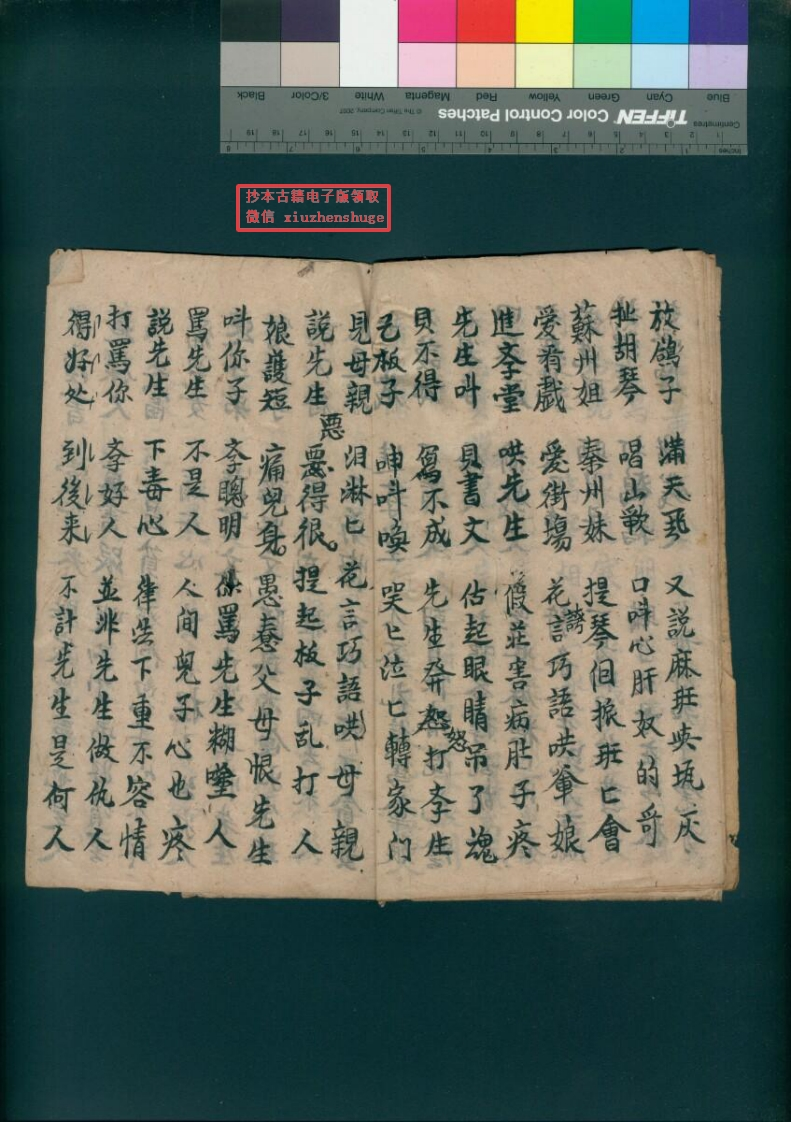 抄本古籍电子版领取
微信 xiuzhenshuge
TIFFEN Color Control Patches
© The Tiffen Company, 2007
Centimetres
Inches
Blue Cyan Green Yellow Red Magenta White 3/Color Black
放鴿子 滿天飛 又説麻班 瓦灰
扯胡琴 唱山歌 口呌心肝奴的哥
蘇州姐 秦州妹 提琴 班匕會
愛看戲 愛街塲 花言巧語哄爺娘
進斈堂 哄先生 假莊害病肚子疼
先生呌 貝書文 估起眼睛吊了魂
貝不得 寫不成 先生發怒打斈生
乞板子 呻呌喚 哭匕泣匕轉家门
見母親 泪淋匕 花言巧語哄母親
説先生 惡得很 提起板子乱打人
娘護短 痛兒身 愚蠢父母恨先生
呌你子 斈聰明 你罵先生糊塗人
罵先生 不是人 人间兒子心也疼
説先生 下毒心 下重不容情
打罵你 斈好人 並非先生做仇人
得好处 到後来 不計先生是何人